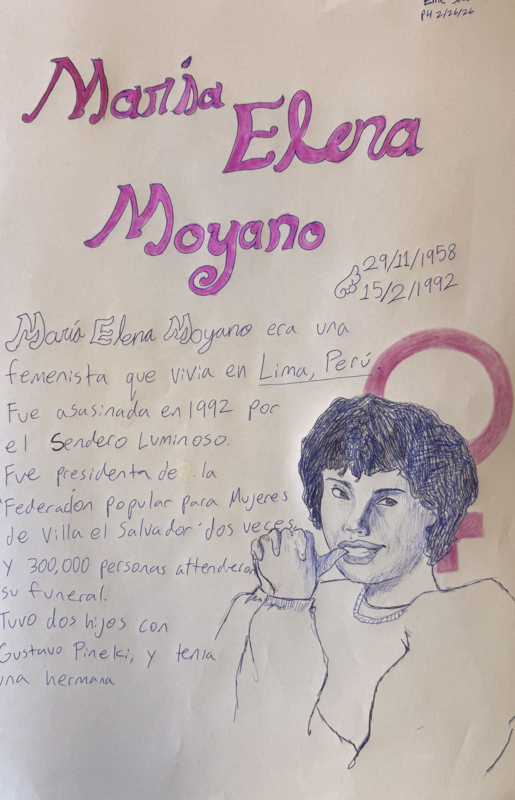 P4 2/26/26
Marisa
Elena
Moyano
29/11/1958
15/2/1992
María Elena Moyano era una
femenista que vivia en Lima, Perú.
Fue asasinada en 1992 por
el Sendero Luminoso.
Fue presidenta de la
"Federacion popular para Mujeres
de Villa el Salvador" dos veces
Y 300,000 personas attendieron
su funeral.
Tuvo dos hijos con
Gustavo Pineki, y tenia
una hermana